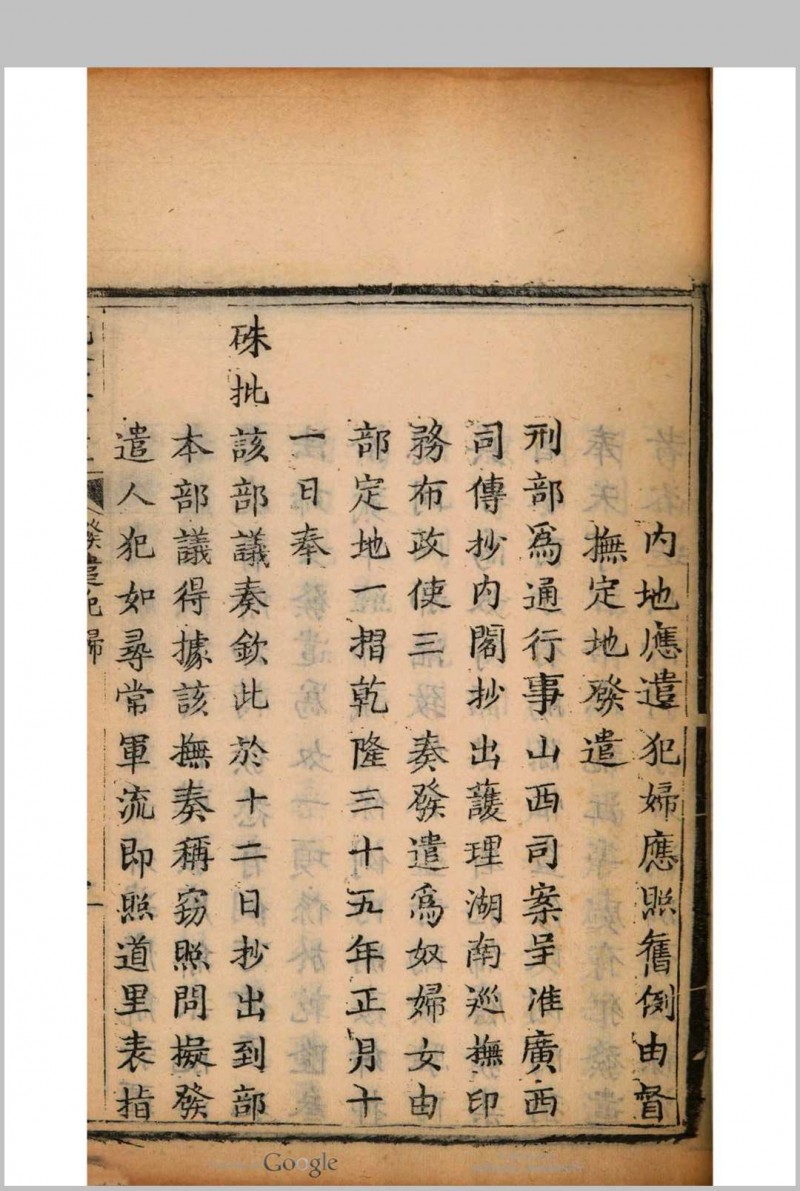 內地應遣犯婦應照舊例由督
撫定地發遣
刑部爲通行事山西司案呈准廣西
司傳抄內閣抄出護理湖南巡撫印
務布政使三　奏發遣爲奴婦女由
部定地一摺乾隆三十五年正月十
一日奉
硃批該部議奏欽此於十二日抄出到部
本部議得據該撫奏稱竊照問擬發
遣人犯如尋常軍流即照道里表指
發遣犯婦
一
Google